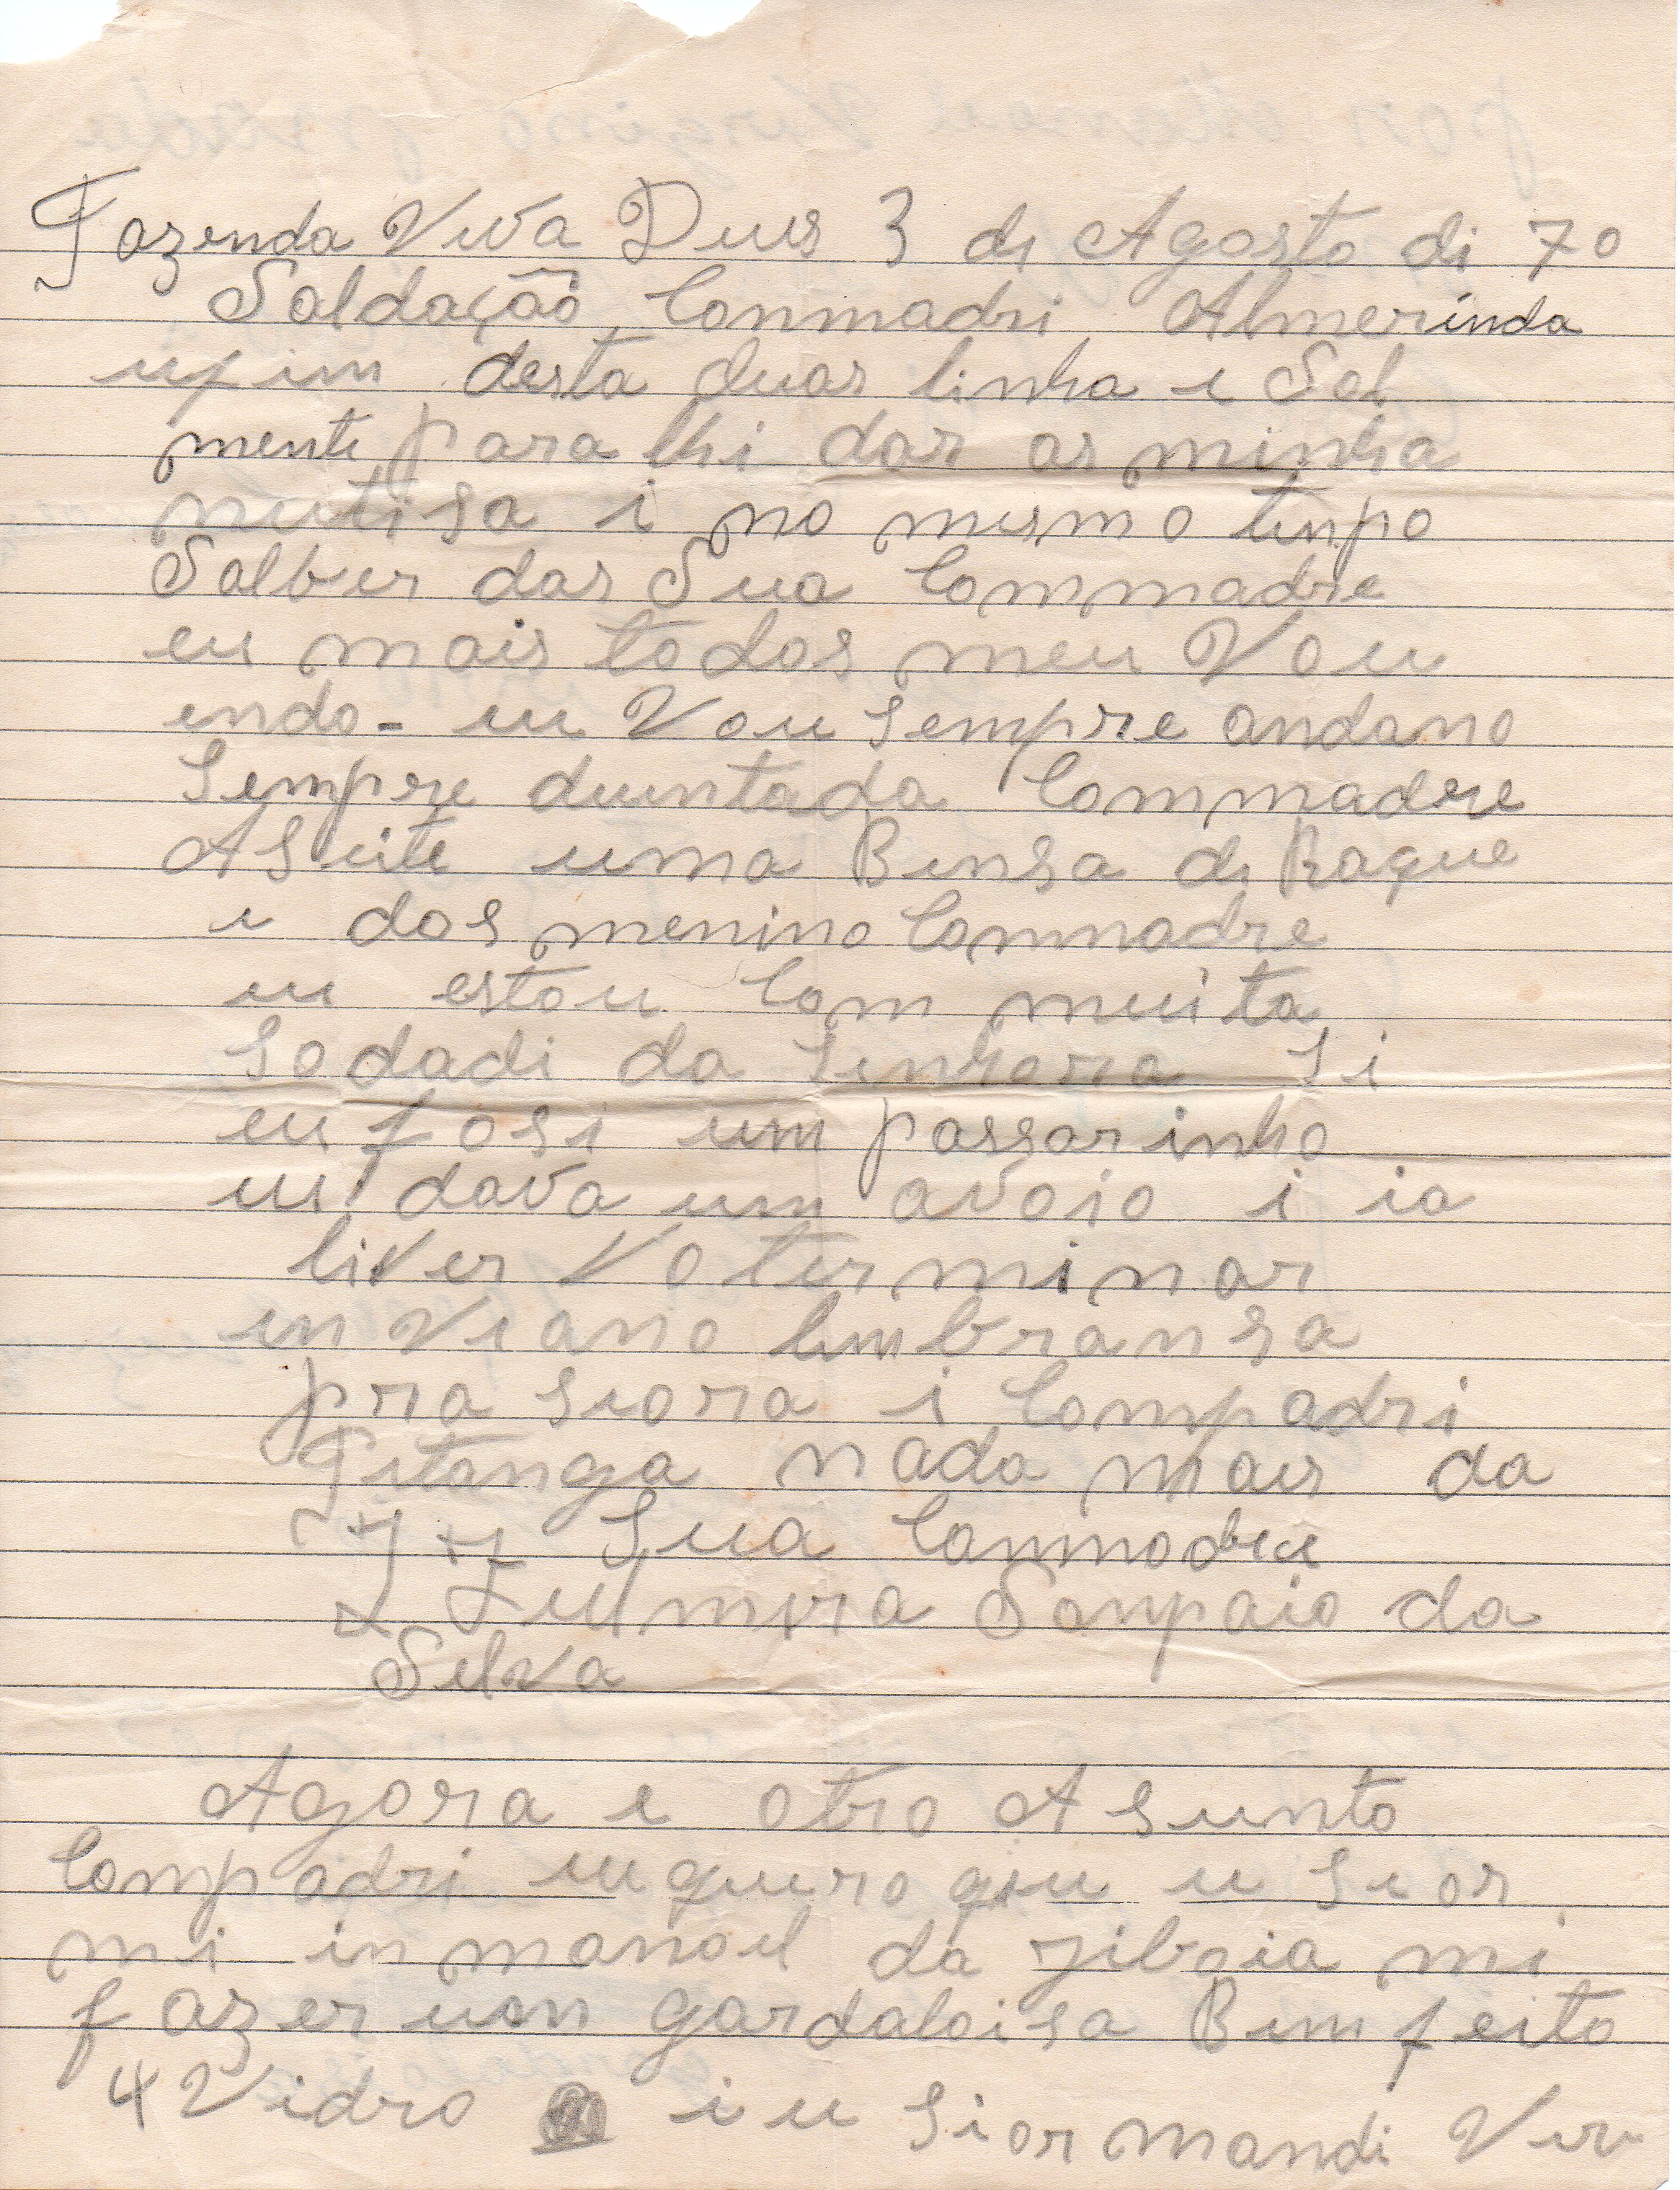 Fazenda Viva Deus 3 de Agosto di 70
Saldação Conmadri Almerinda
u fim desta duas linha e Sol
mente para lhi dar as minha
nutisa i no mesmo tenpo
Salber das Sua Commadre
eu mais todos meu Vou
indo - eu Vou sempre andano
Sempre duentada Commadre
ASeite uma Bensa de Raque
e dos menino Commadre
eu estou Com muita
sodadi da Senhora Si
eu fosi um passarinho
eu dava um avoio i ia
liver Vo terminar
en Viano lembransa
pra siora i Compadri
Pitanga nada mais da
Sua Conmadre
Zulmira Sanpaio da
Silva
Agora e otro ASunto
Compadri eu quero que u Sior
mi in manoel da ribria mi
fazer um gardaloisa Bem feito
4 Vidro i u Sior mandi Ver